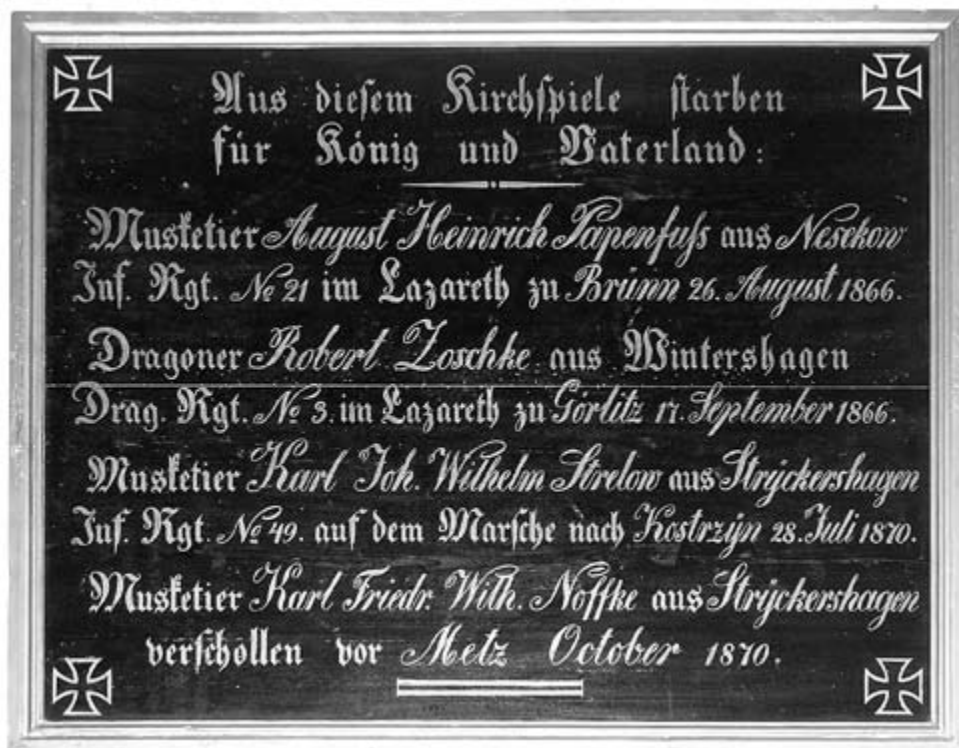 Aus dieſem Kirchſpiele ſtarben
für König und Vaterland:
Musketier August Heinrich Papenfuſs aus Nesekow
Inf. Rgt. No 21 im Lazareth zu Brünn 26. August 1866.
Dragoner Robert Zoschke aus Wintershagen
Drag. Rgt. No 3. im Lazareth zu Görlitz 17. September 1866.
Musketier Karl Joh. Wilhelm Strelow aus Strÿckershagen
Inf. Rgt. No 49. auf dem Marſche nach Kostrzÿn 28. Juli 1870.
Musketier Karl Friedr. Wilh. Noffke aus Strÿckershagen
verſchollen vor Metz October 1870.